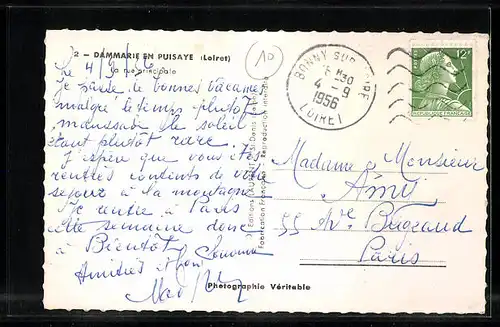 2 - DAMMARIE EN PUISAYE (Loiret)
La rue principale
Le 4/9/56
Je passe de bonnes vacances
malgré le temps plutôt
maussade le soleil
étant plutôt rare.
J'espère que vous êtes
rentrés contents de votre
séjour à la montagne
Je rentre à Paris
cette semaine donc
à Bientôt
Amitiés
10
BONNY SUR LOIRE
-30
4 - 9
1956
LOIRET
12F
REPUBLIQUE FRANÇAISE
Editions
Fabrication Française - Reproduction interdite
Madame Monsieur
Amy
55 Ave Bugeaud
Paris
Photographie Véritable